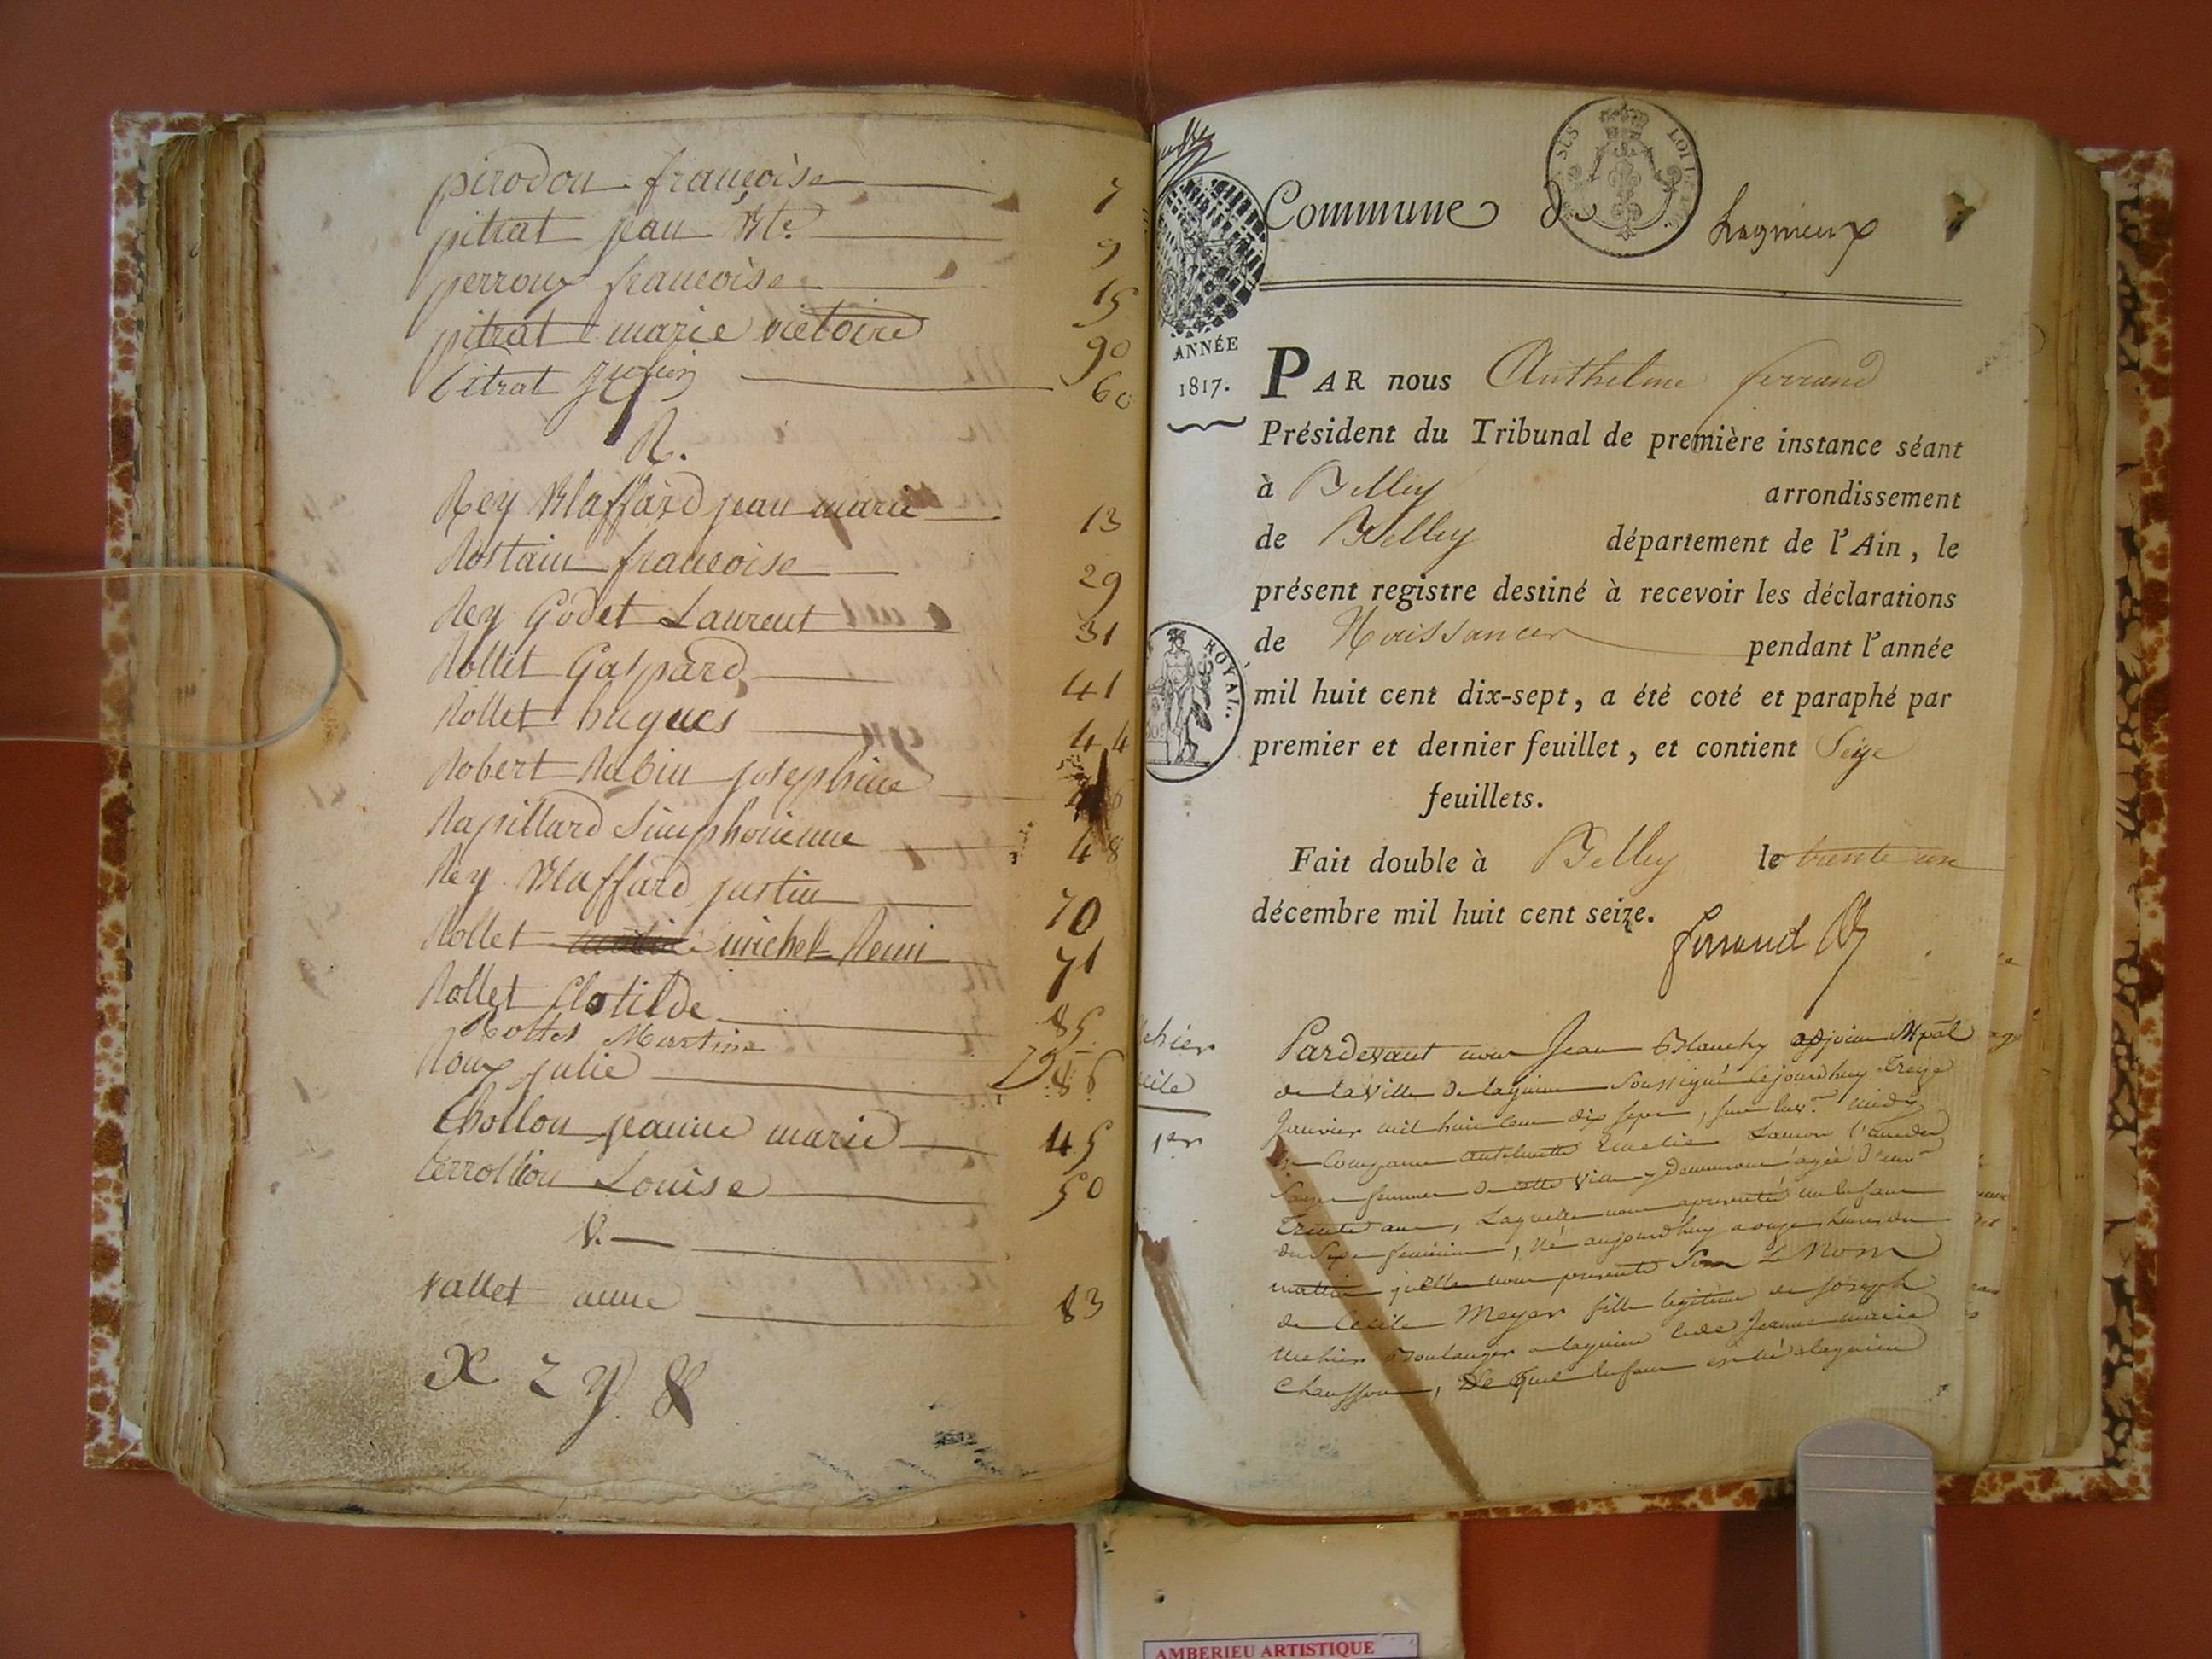 pirodon françoise 7
pitrat jean Bte 9
perroux françoise 15
pitrat marie victoire 90
pitrat 60
R.
Rey Maffard jean marie 13
Rostain françoise 29
Rey Godet Laurent 31
Rollet Gaspard 41
Rollet hugues 44
Robert Rubin josephine
Rapillard Simphorienne 48
Rey Maffard justin 70
Rollet michel Remi 71
Rollet Clotilde 85
Martine
Roux julie 86
Thollon jeanne marie 45
Louise 50
V.
Vallet anne 83
X Z Y &
SUS LOI
Commune de Lagnieux
ANNÉE
1817.
PAR nous Anthelme ferrand
Président du Tribunal de première instance séant
à Belley arrondissement
de Belley département de l'Ain, le
présent registre destiné à recevoir les déclarations
ROYAL.
de Naissances pendant l'année
mil huit cent dix-sept, a été coté et paraphé par
premier et dernier feuillet, et contient Seize
feuillets.
Fait double à Belley le trente un
décembre mil huit cent seize.
ferrand
chier
cile
1er
Pardevant nous Jean Blanchy adjoint Mpal
de la Ville de lagnieu Soussigné Cejourdhuy Treize
Janvier mil huit cent dix sept, sur midy
Comparu antelmette Emelie
Sage femme de cette Ville y demeurant agée d'env
Trente ans, Laquelle nous apresenté un Enfant
du Sexe feminin, Né aujourdhuy a onze heures du
mattin quelle nous presente Sous Le Nom
de Cecile Meyer fille legitime de Joseph
Mehier Boulanger a lagnieu et de Jeanne marie
Chausson, Le quel Enfant est né a lagnieu
AMBERIEU ARTISTIQUE